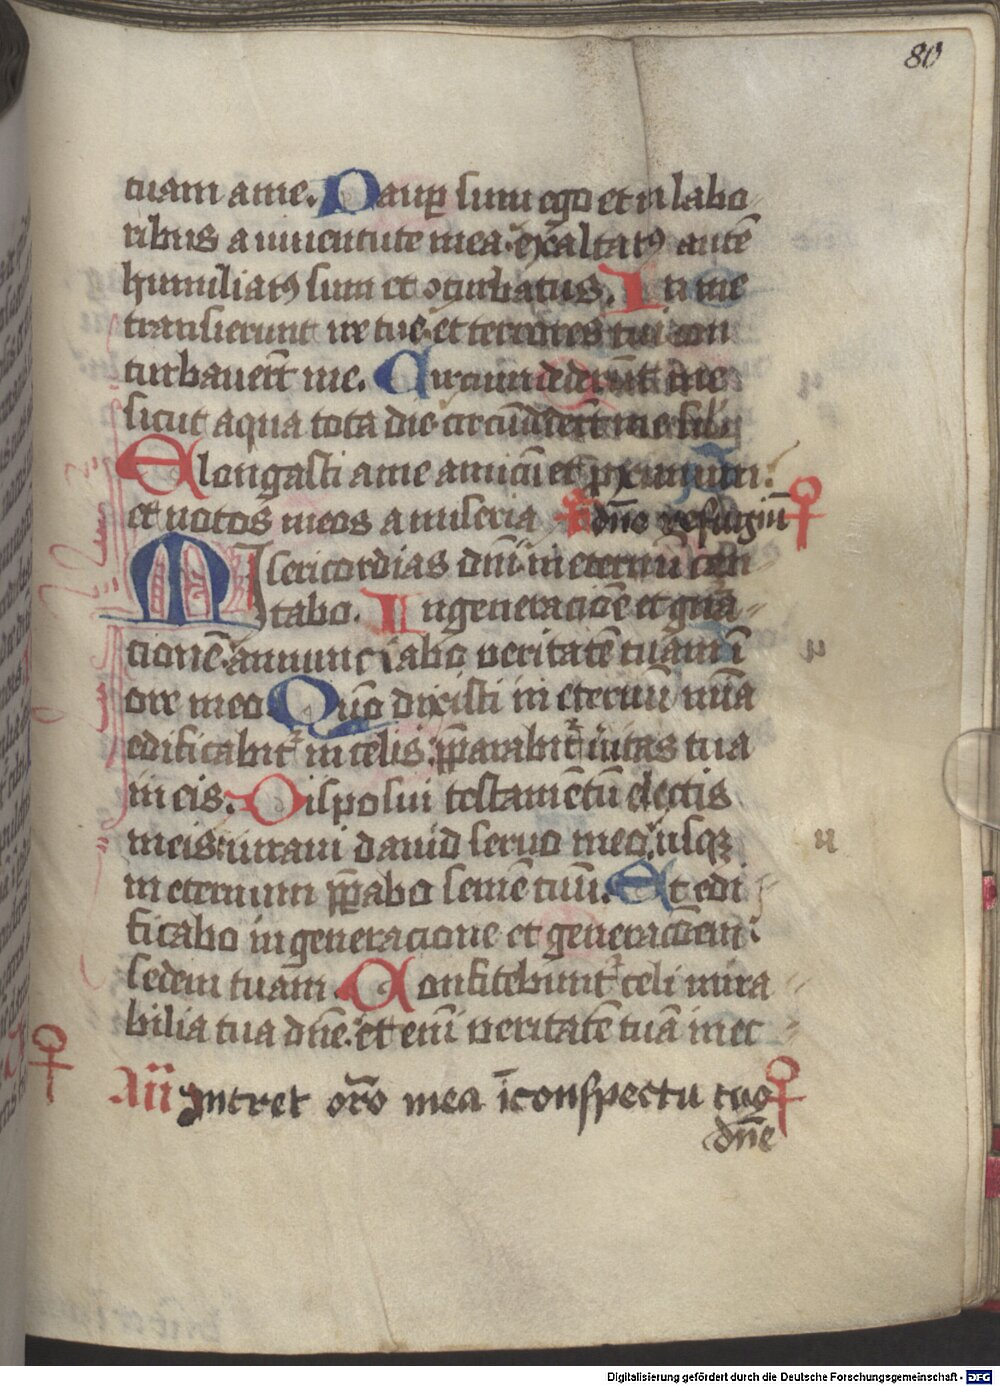 80
tuam a me. Paup sum ego et in labo
ribus a iuuentute mea exaltatꝰ autē
humiliatꝰ sum et ɔturbatus. In me
transierunt ire tue et terrores tui con
turbauerūt me. Circumdederūt me
sicut aqua tota die circūdederūt me sil'
Elongasti a me amicū et pximum:
et notos meos a miseria dn̄e refugiū
Misericordias dn̄i in eternū can
tabo. In generacioē et gn̄a
cionē annunciabo veritatē tuam ī
ore meo Qm̄o dixisti in eternū mīa
edificabitᷣ in celis pparabitᷣ ūitas tua
in eis. Disposui testamētū electis
meis iuraui dauid seruo meo usqꝫ
in eternum ppabo semē tuū. Et edi
ficabo in generacione et generacōem
sedem tuam. Confitebuntᷣ celi mira
bilia tua dn̄e et eni veritatē tuā in ec
Aīī Intret orō mea īconspectu tuo
dn̄e
Digitalisierung gefördert durch die Deutsche Forschungsgemeinschaft - DFG